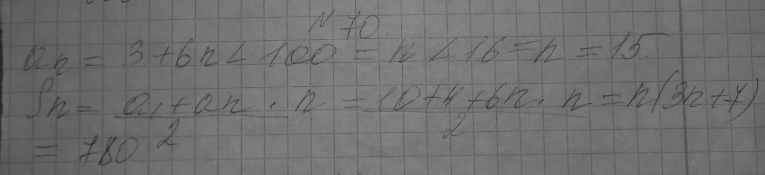 N 70.
an = 3 + 6n < 100 = n < 16 = n = 15.
Sn = a1 + an / 2 · n = 10 + 4 + 6n / 2 · n = n(3n + 7)
= 780